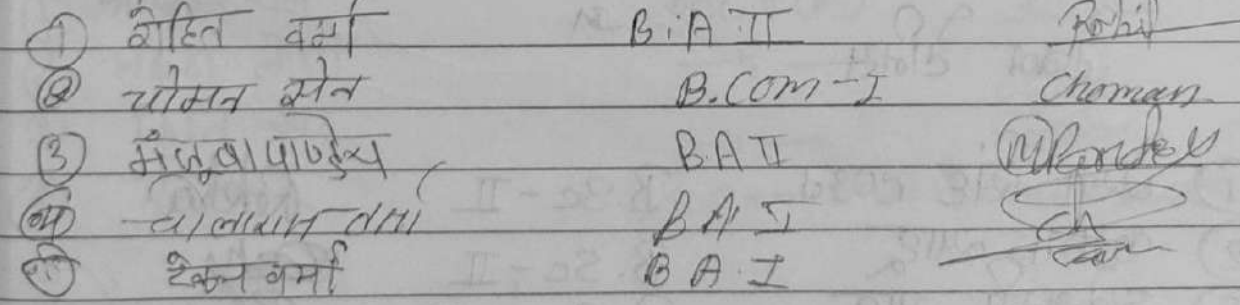 ① रोहित वर्मा B.A II Rohit
② चोमन सेन B.Com-I Choman
③ मंजूषा पाण्डेय BA II M Pandey
④ वर्मा BA I
⑤ टेकन वर्मा B A I